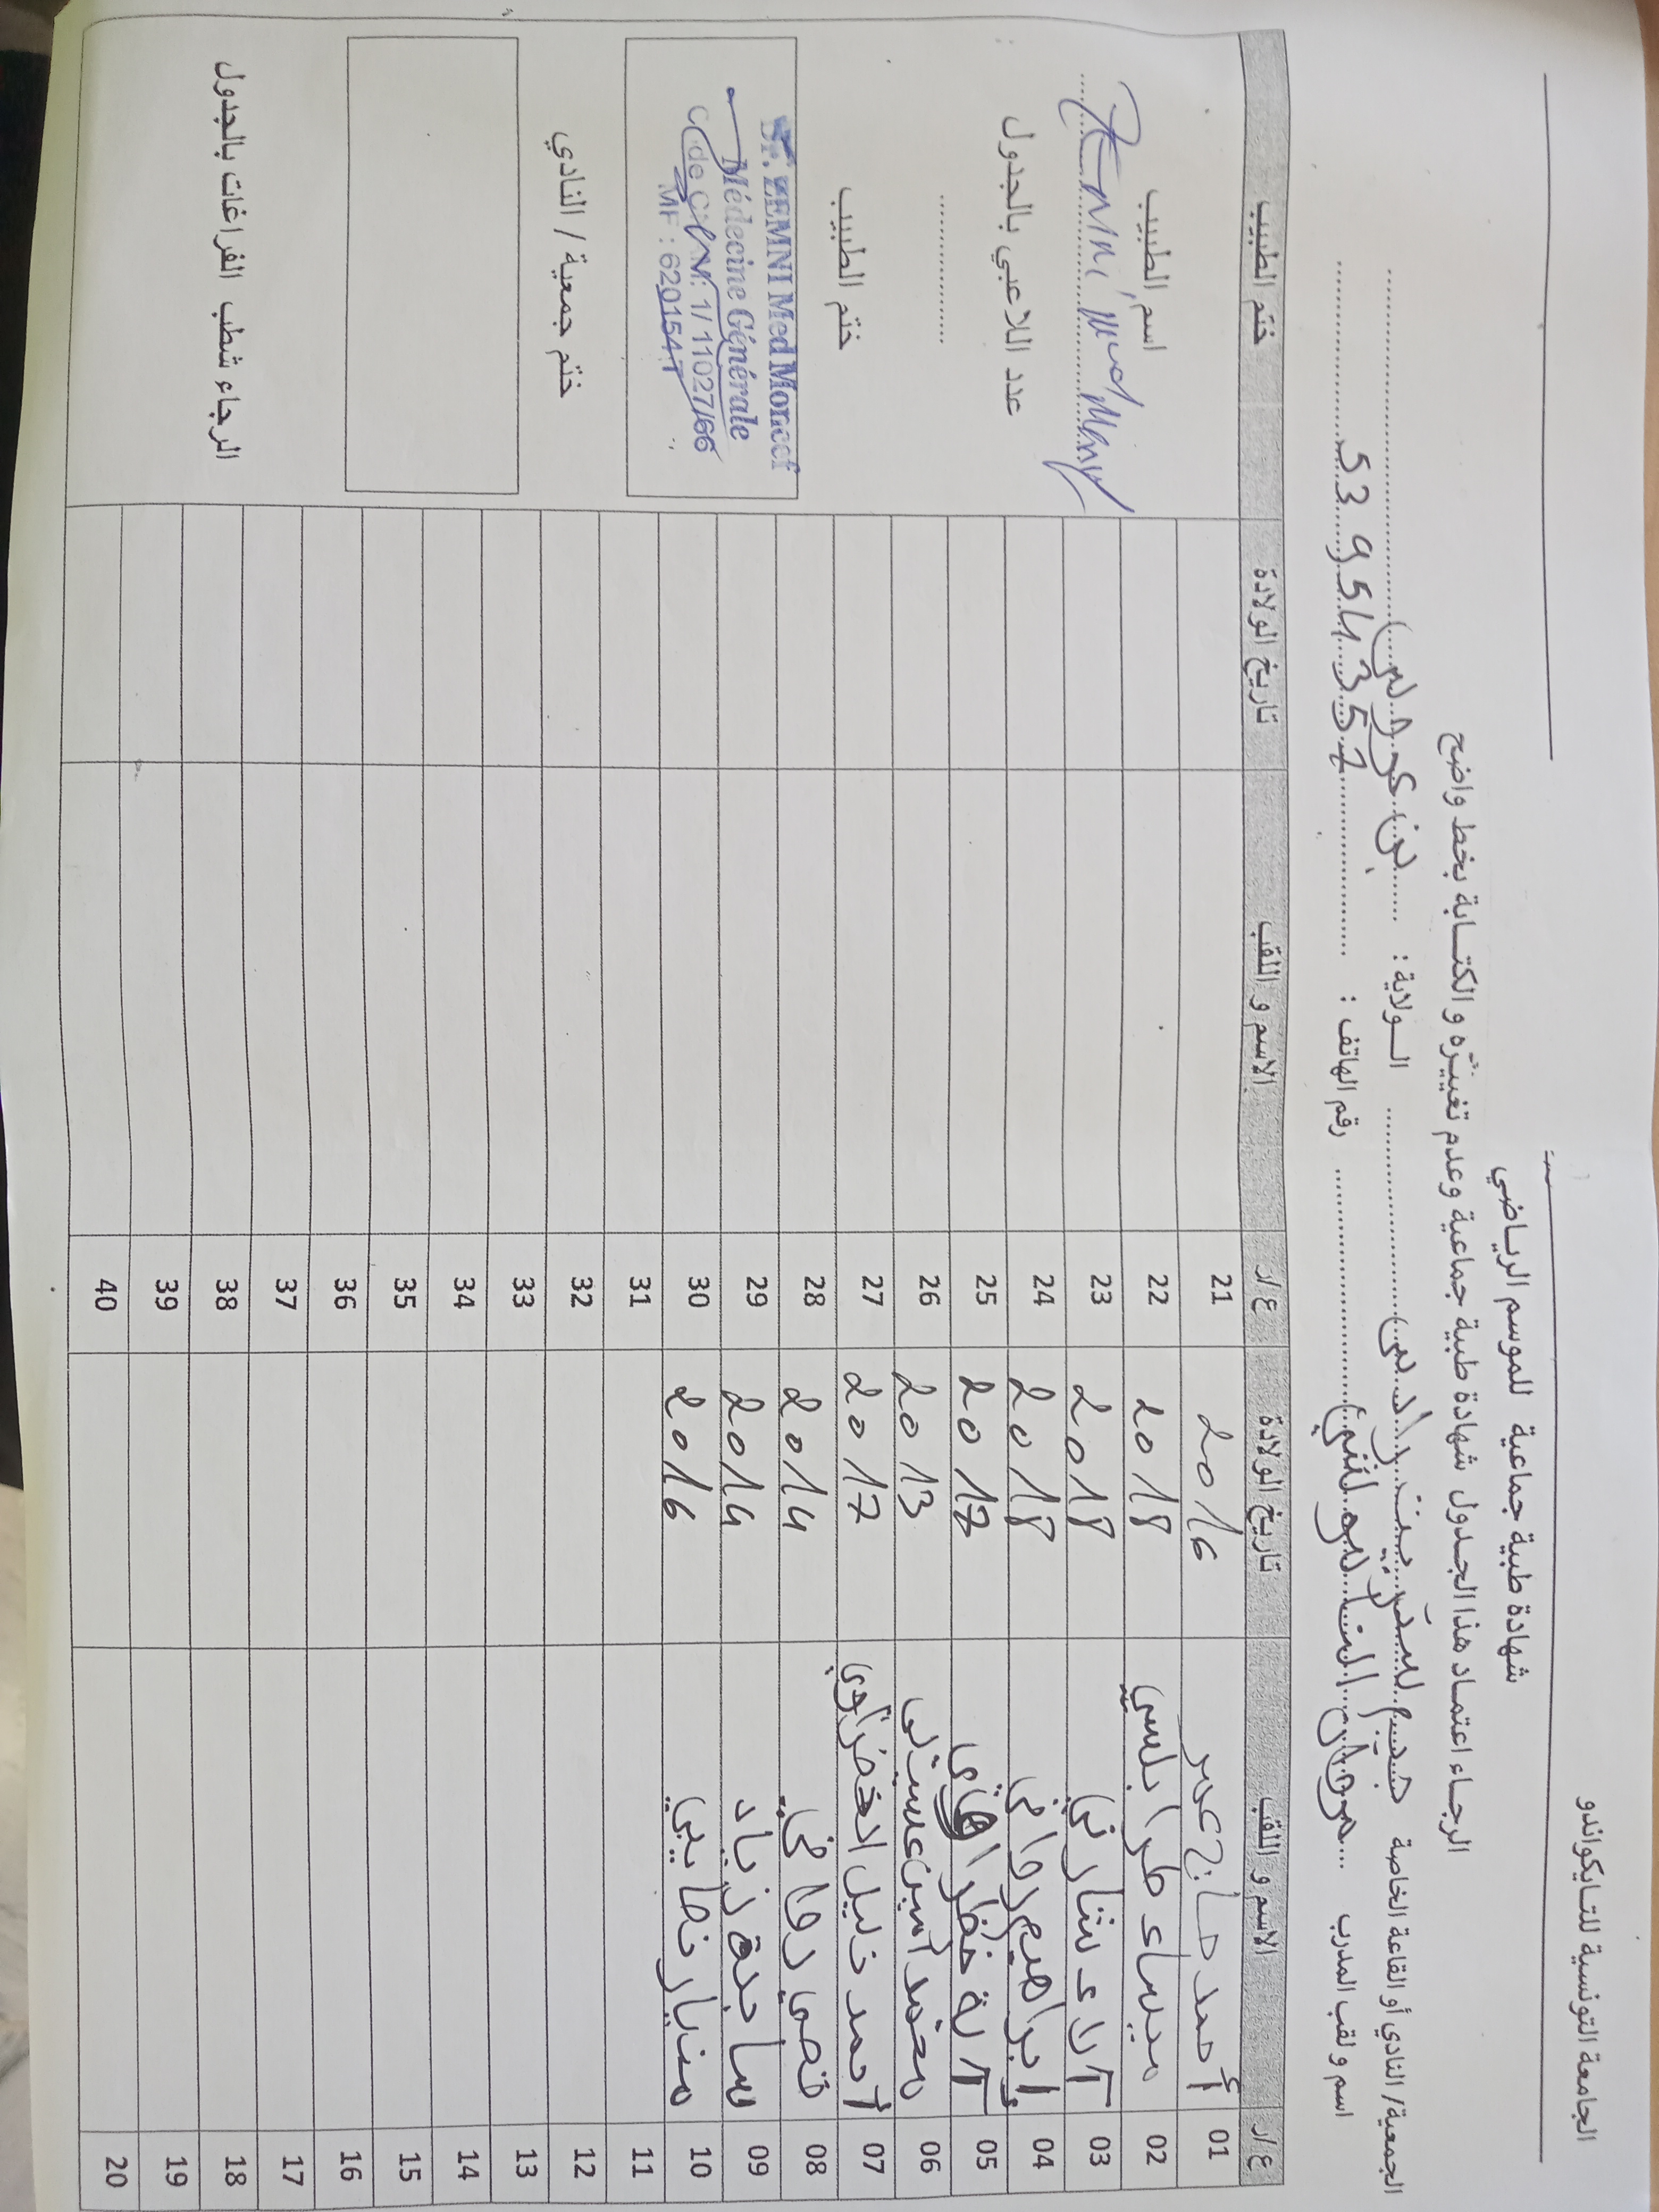 الجامعة التونسية للتايكواندو
شهادة طبية جماعية للموسم الرياضي
الرجاء اعتماد هذا الجدول شهادة طبية جماعية وعدم تغييره و الكتابة بخط واضح
الجمعية/ النادي أو القاعة الخاصة ............ الولاية : بن عروس
اسم و لقب المدرب ............ رقم الهاتف : 53 954 357
ع/ر الاسم و اللقب تاريخ الولادة ع/ر الاسم و اللقب تاريخ الولادة ختم الطبيب
01 أحمد حاج عمر 2016 21
02 ميساء طرابلسي 2018 22
03 آلاء شارني 2018 23
04 إبراهيم رواني 2018 24
05 آية خضراوي 2017 25
06 محمد أمين 2013 26
07 أحمد خليل الخضراوي 2017 27
08 قصي رواني 2014 28
09 ساجدة زياد 2014 29
10 منيار خصايبي 2016 30
11 31
12 32
13 33
14 34
15 35
16 36
17 37
18 38
19 39
20 40
اسم الطبيب
Zemni Med Moncef
عدد اللاعبي بالجدول
............
ختم الطبيب
Dr. ZEMNI Med Moncef
Médecine Générale
Code CNAM: 1/ 11027/66
MF : 620154T
ختم جمعية / النادي
الرجاء شطب الفراغات بالجدول